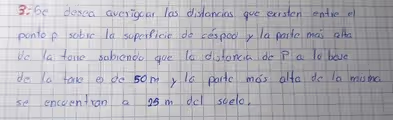 3:- Se desea averiguar las distancias que existen entre el
punto p sobre la superficie de césped y la parte más alta
de la torre sabiendo que la distancia de P a la base
de la torre es de 50m y la parte más alta de la misma
se encuentran a 25 m del suelo.